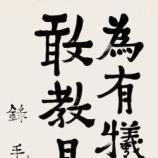 為有犧
敢教日
錄毛